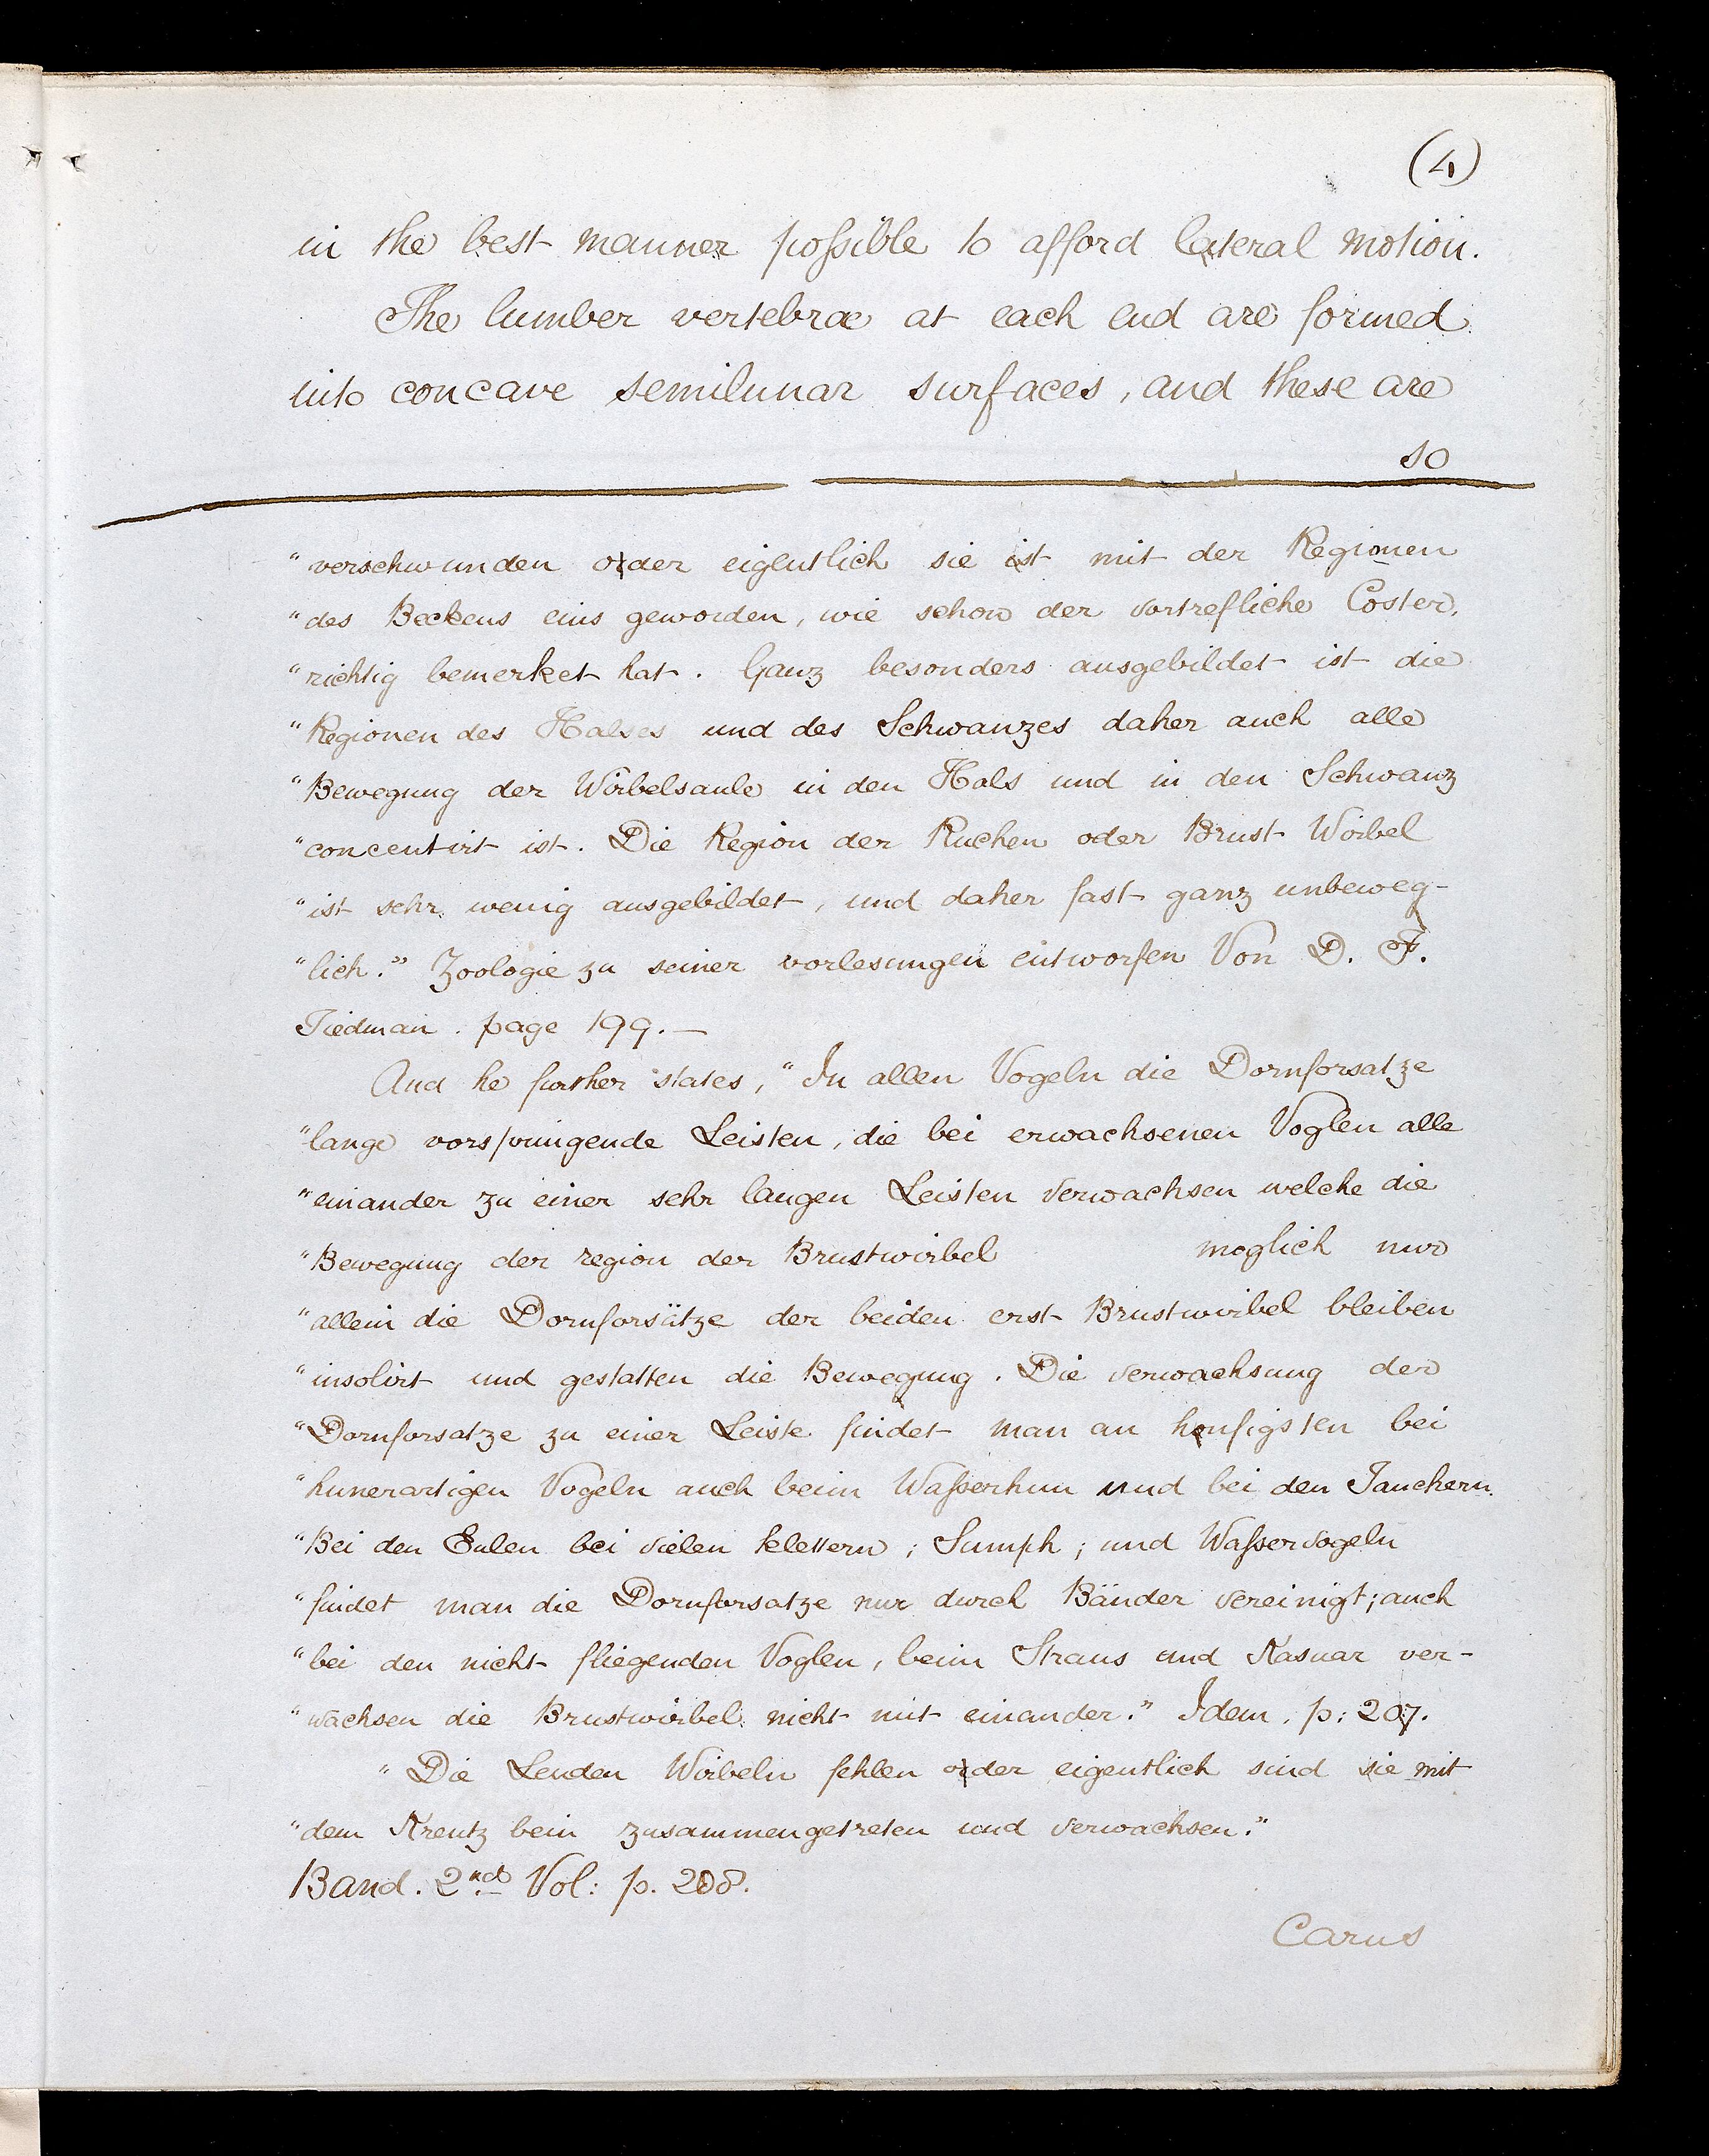 (4)
in the best manner possible to afford lateral motion.
The lumber vertebræ at each end are formed
into concave semilunar surfaces, and these are
so
"verschwunden oder eigentlich sie ist mit der Regionen
"des Beckens eins geworden, wie schon der vortrefliche Coster,
"richtig bemerket hat. Ganz besonders ausgebildet ist die
"Regionen des Halses und des Schwanzes daher auch alle
"Bewegung der Wirbelsaule in den Hals und in den Schwanz
"concentirt ist. Die Region der Ruchen oder Brust Wirbel
"ist sehr wenig ausgebildet, und daher fast ganz unbeweg-
"lich." Zoologie zu seiner vorlesungen entworfen Von D. F.
Tiedman. page 199.—
And he further states, "In allen Vogeln die Dornforsatze
"lange vorspringende Leisten, die bei erwachsenen Voglen alle
"einander zu einer sehr langen Leisten verwachsen welche die
"Bewegung der region der Brustwirbel moglich nur
"allein die Dornforsätze der beiden erst Brustwirbel bleiben
"insolirt und gestatten die Bewegung. Die verwachsung der
"Dornforsatze zu einer Leiste findet man an haufigsten bei
"hunerartigen Vogeln auch beim Wasserhun und bei den Tauchern.
"Bei den Eulen bei vielen klettern; Sumph; und Wasservogeln
"findet man die Dornforsatze nur durch Bänder vereinigt; auch
"bei den nicht fliegenden Voglen, beim Straus und Kasuar ver-
"wachsen die Brustwirbel nicht mit einander." Idem. p: 207.
"Die Lenden Wirbeln fehlen oder eigentlich sind sie mit
"dem Kreutz bein zusammengetreten und verwachsen."
Band. 2nd Vol: p. 208.
Carus